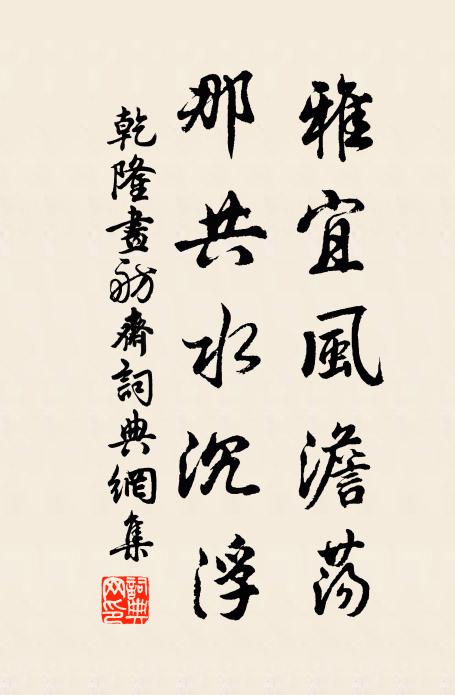 雅宜風澹蕩
那共水沉浮
乾隆畫舫齋詞典網集
詞典網印